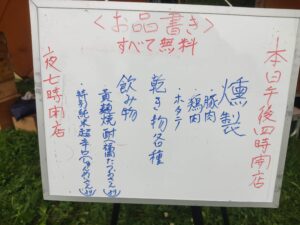 <お品書き>
すべて無料
本日午後四時開店
燻製
・豚肉
・鶏肉
・ホタテ
乾き物各種
飲み物
・黄麹焼酎
・特別純米超辛口
夜七時閉店